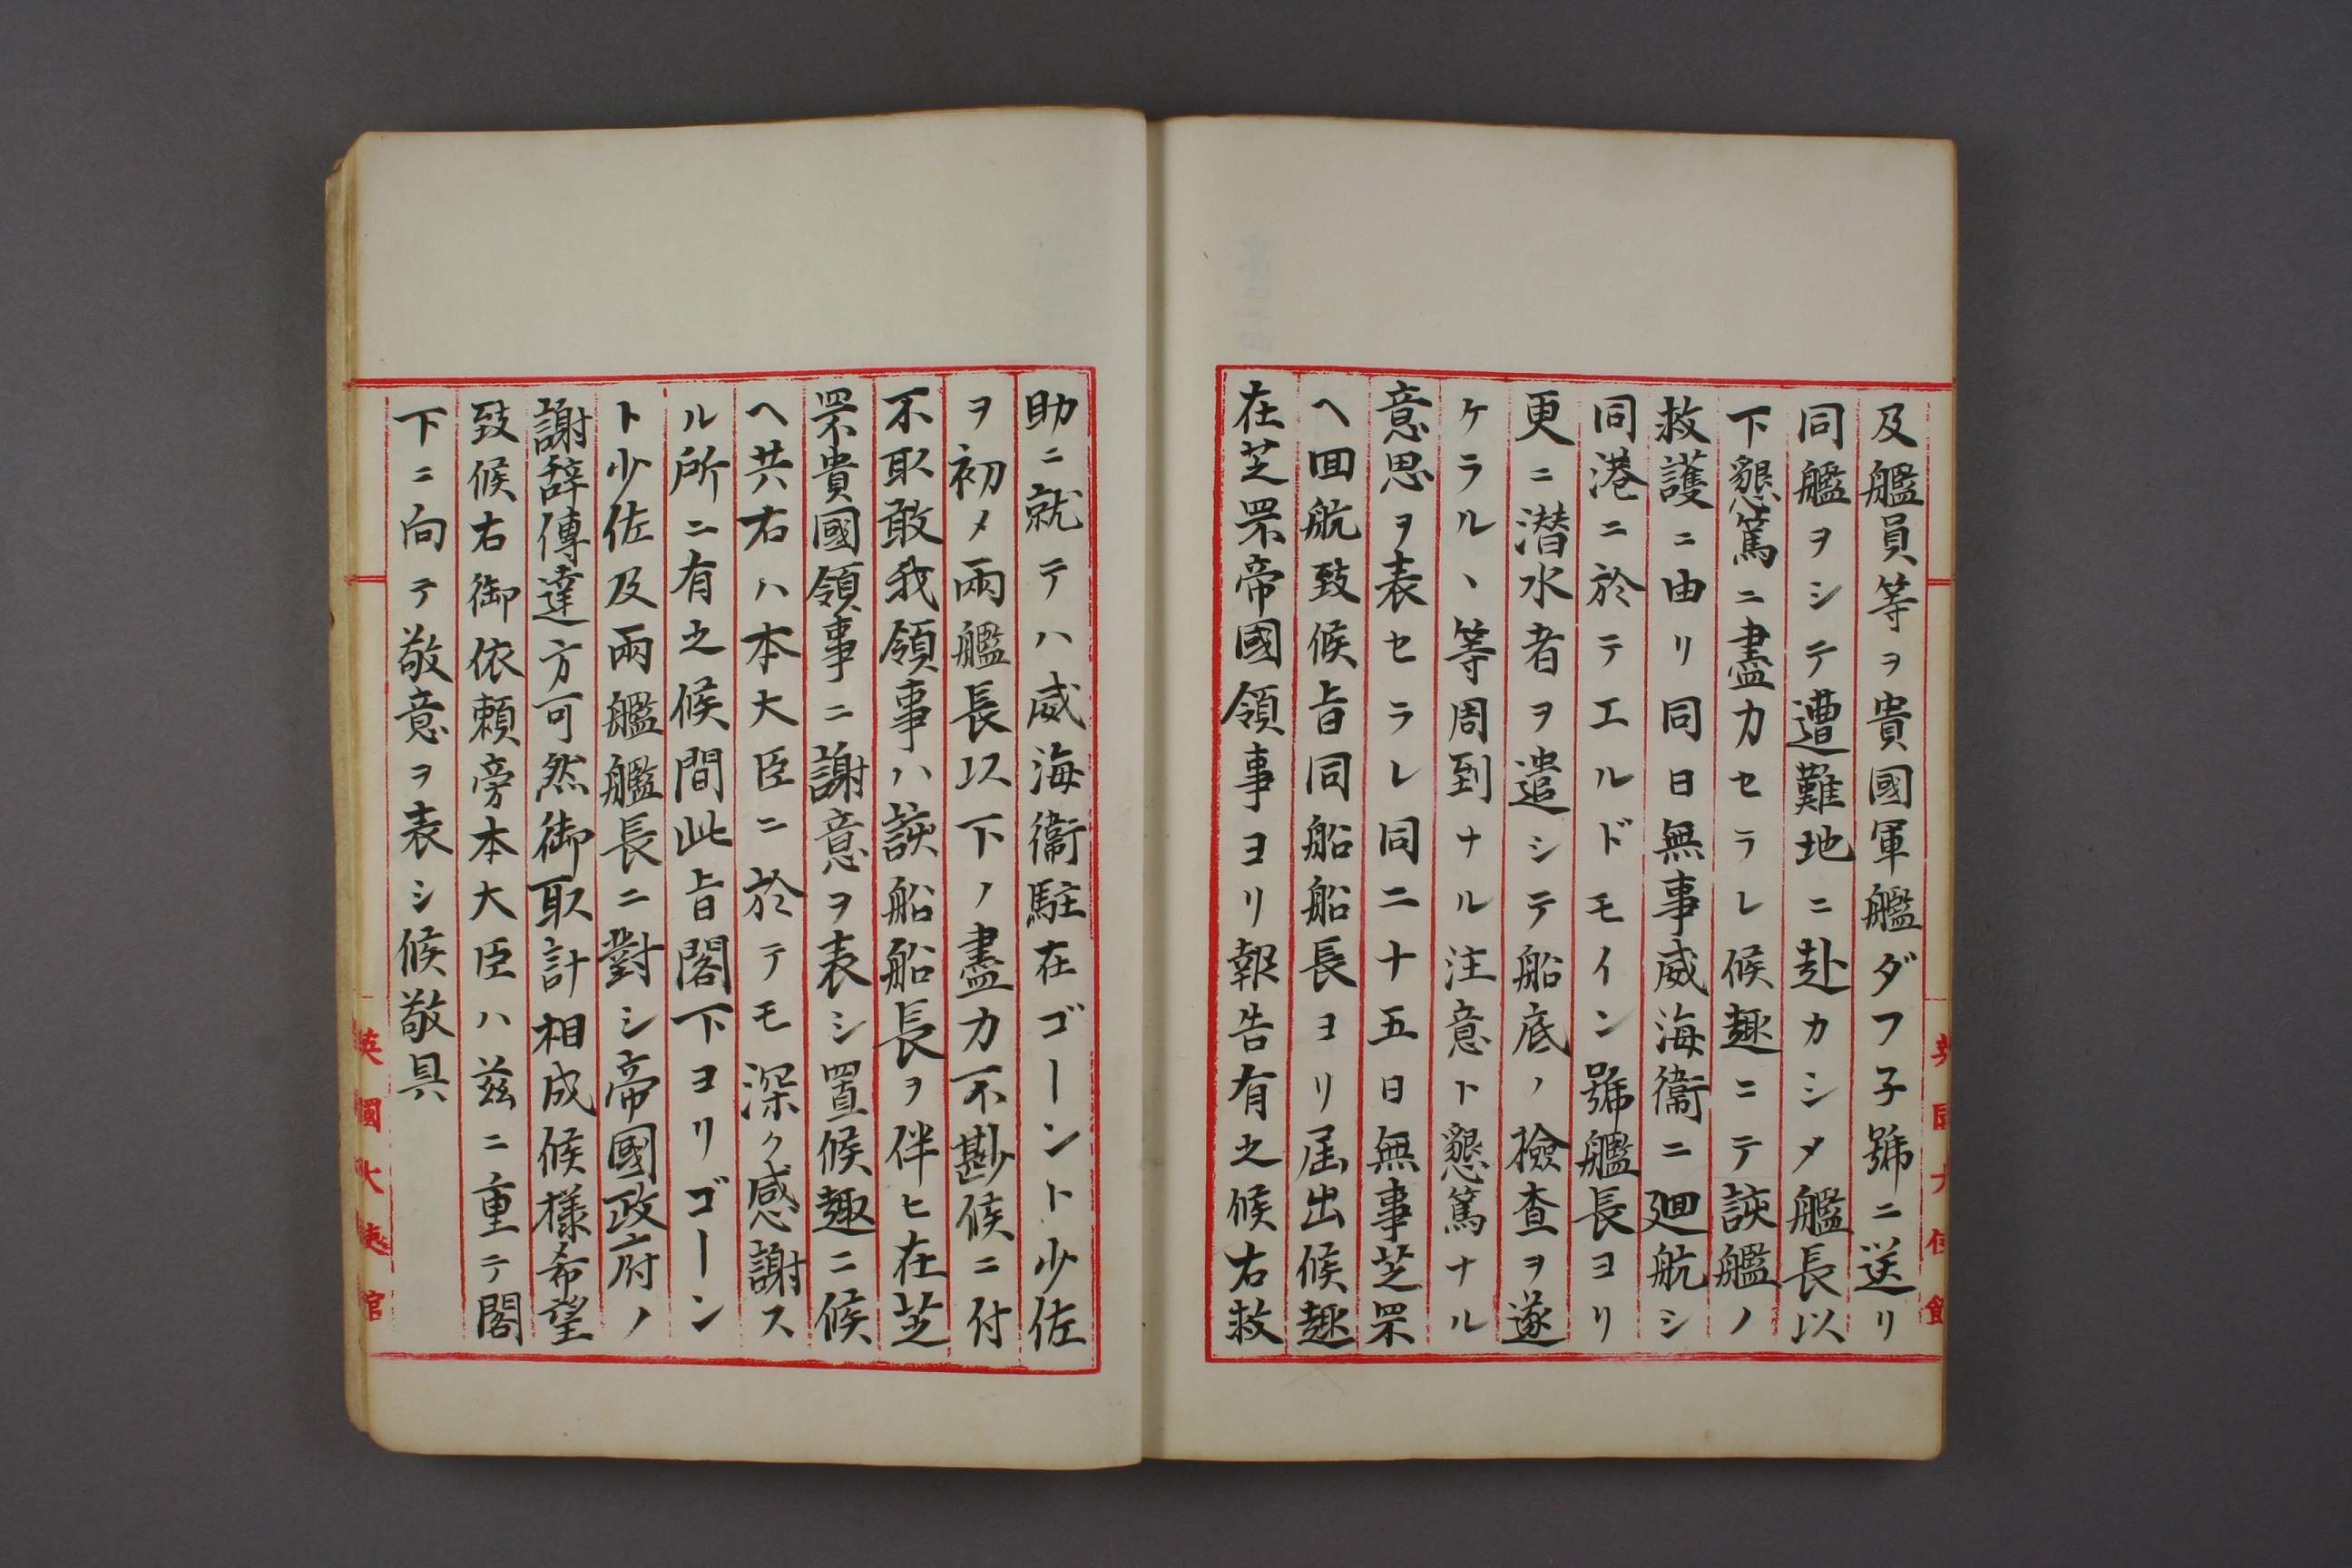 及艦員等ヲ貴國軍艦ダフ子號ニ送リ
同艦ヲシテ遭難地ニ赴カシメ艦長以
下懇篤ニ盡力セラレ候趣ニテ該艦ノ
救護ニ由リ同日無事威海衞ニ廻航シ
同港ニ於テエルドモイン號艦長ヨリ
更ニ潜水者ヲ遣シテ船底ノ檢查ヲ遂
ケラルヽ等周到ナル注意ト懇篤ナル
意思ヲ表セラレ同二十五日無事芝罘
ヘ回航致候旨同船船長ヨリ届出候趣
在芝罘帝國領事ヨリ報告有之候右救
助ニ就テハ威海衞駐在ゴーント少佐
ヲ初メ兩艦長以下ノ盡力不尠候ニ付
不取敢我領事ハ該船船長ヲ伴ヒ在芝
罘貴國領事ニ謝意ヲ表シ置候趣ニ候
ヘ共右ハ本大臣ニ於テモ深ク感謝ス
ル所ニ有之候間此旨閣下ヨリゴーン
ト少佐及兩艦艦長ニ對シ帝國政府ノ
謝辞傳達方可然御取計相成候樣希望
致候右御依賴旁本大臣ハ茲ニ重テ閣
下ニ向テ敬意ヲ表シ候敬具
英國大使館
英國大使館